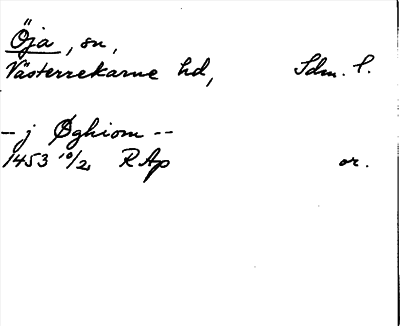 Öja, sn,
Västerrekarne hd, Sdm. l.
-- j Øghiom --
1453 10/2 RAp or.